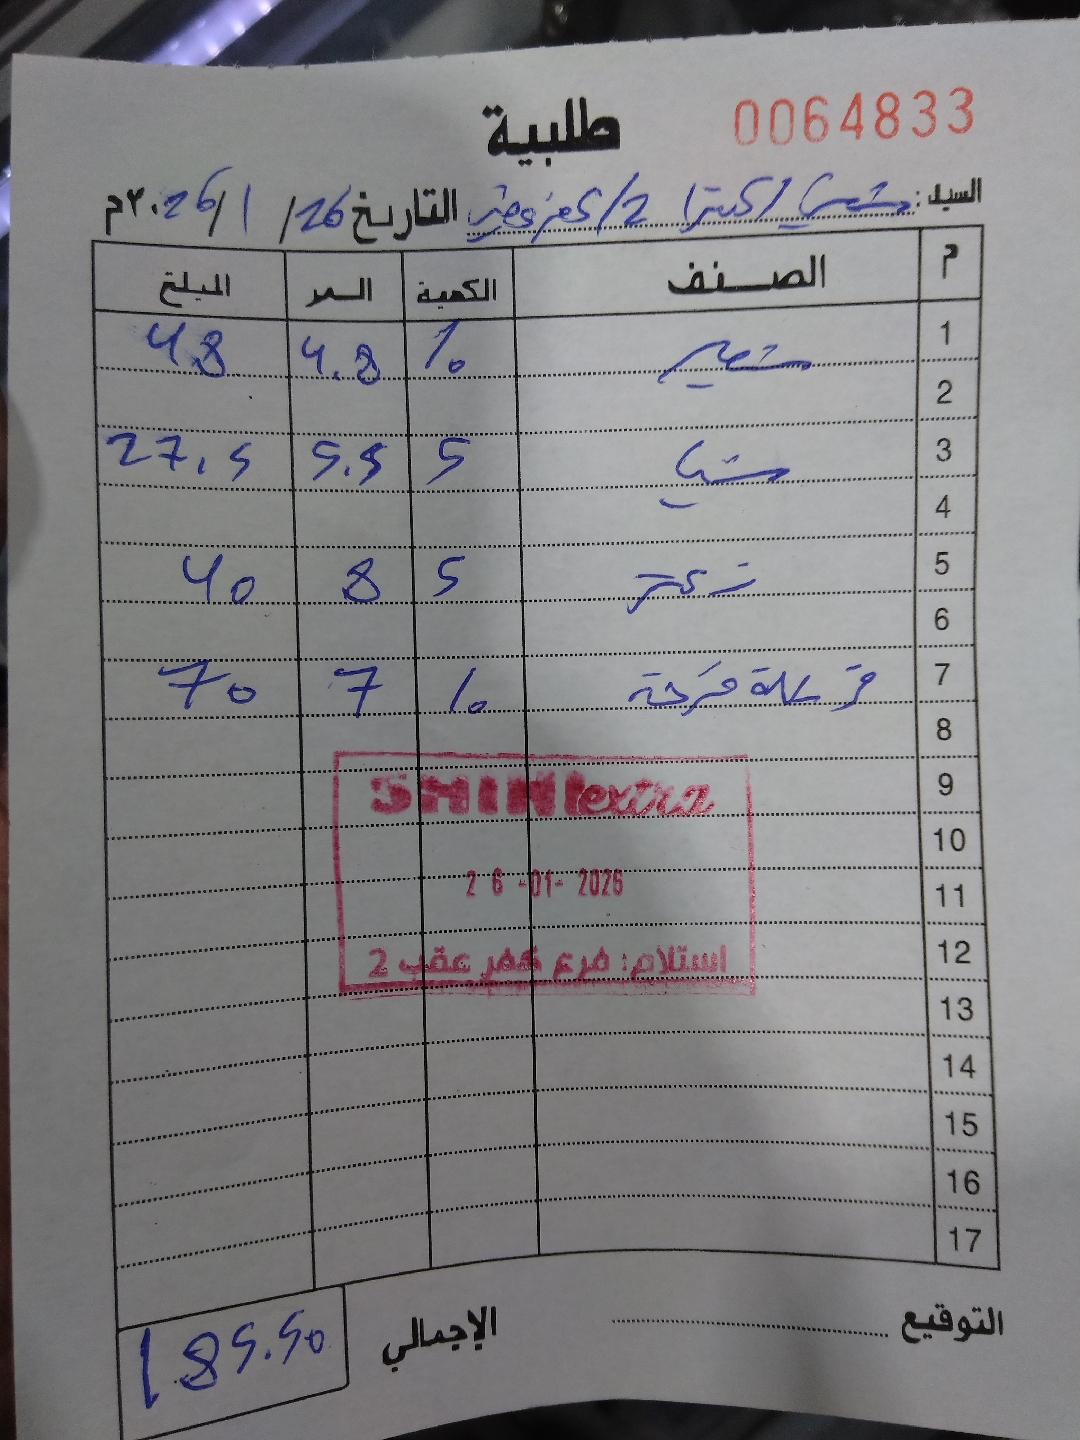 طلبية 0064833
السيد: شيني اكسترا 2/ كفر عقب التاريخ 26/1/2026م
م الصنف الكمية السعر المبلغ
1 شعير 10 4.8 48
2
3 شيا 5 5.5 27.5
4
5 زعتر 5 8 40
6
7 قرشلة فرحة 10 7 70
8
9
10
11
12
13
14
15
16
17
SHINI extra
26-01-2026
استلام: فرع كفر عقب 2
التوقيع الإجمالي 185.50